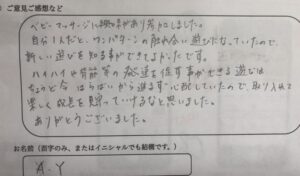 ご意見ご感想など
ベビーマッサージに興味があり参加しました。
自分1人だと、ワンパターンの触れ合い遊びだなっていたので、
新しい遊びを知る事ができてよかったです。
ハイハイや背筋等の発達を促す事ができる遊びは
ちょうど今
心配していたので、取り入れて
楽しく成長を見守っていけるなと思いました。
ありがとうございました。
お名前(苗字のみ、またはイニシャルでも結構です。)
A.Y